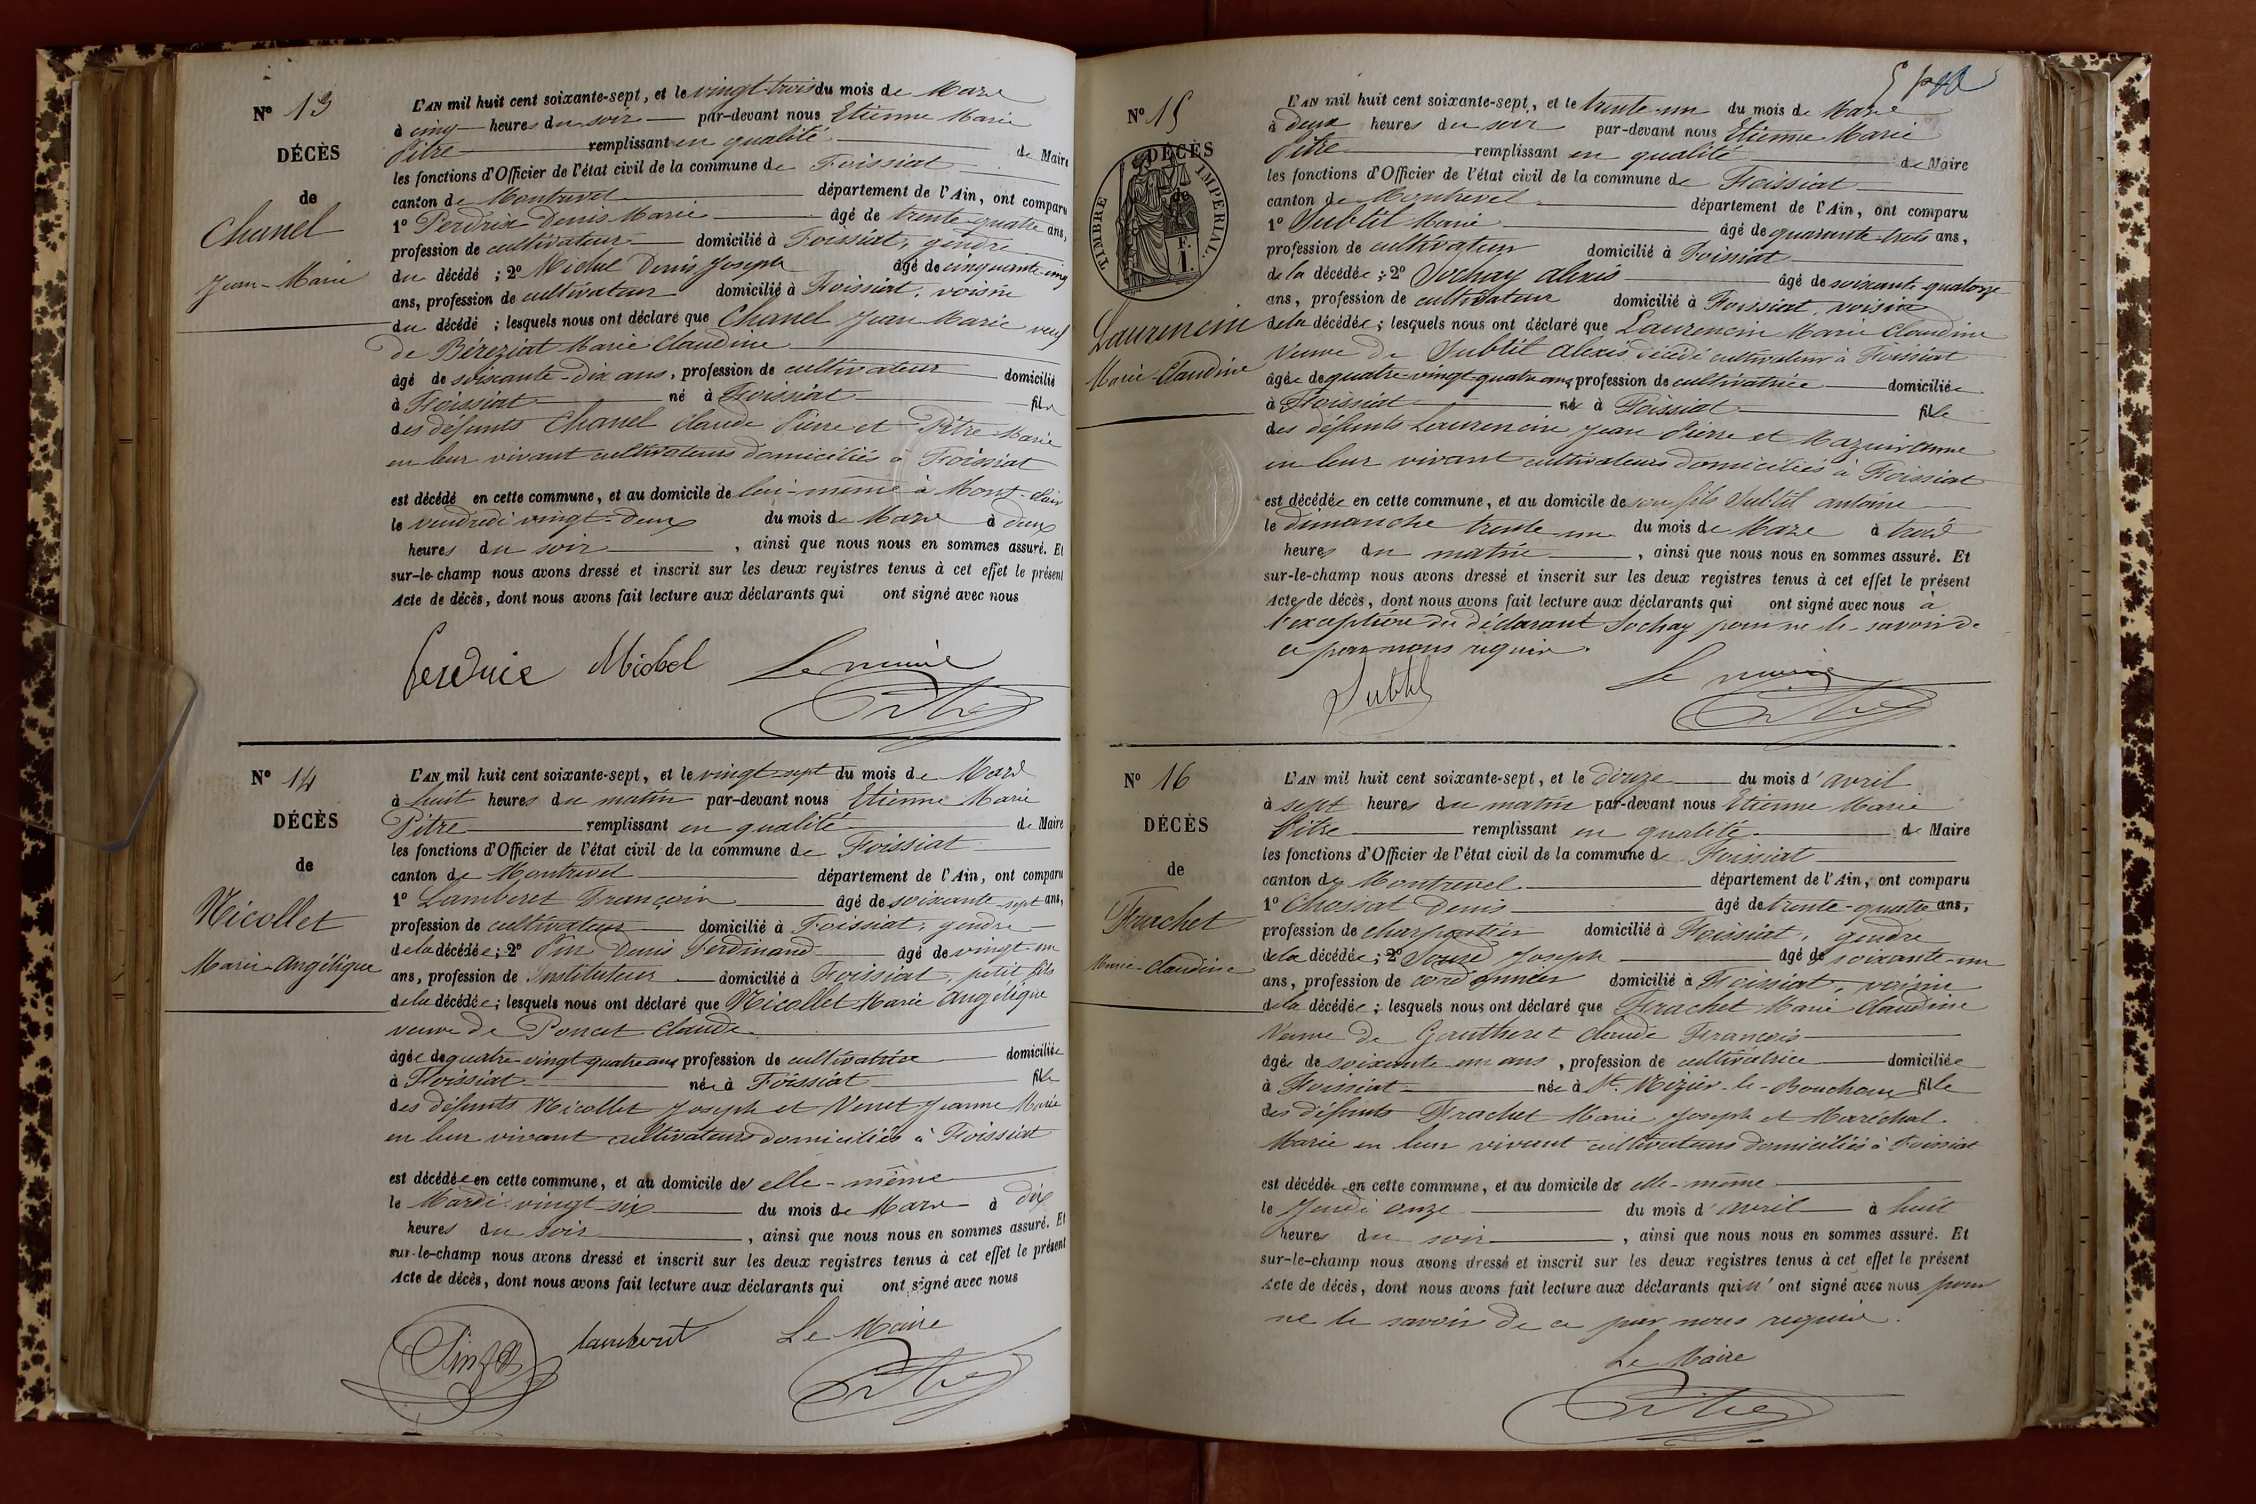 N° 13
DÉCÈS
de
Chanel
Jean-Marie
L'AN mil huit cent soixante-sept, et le vingt-trois du mois de Mars
à cinq heures du soir par-devant nous Etienne Marie
Pitre remplissant en qualité de Maire
les fonctions d'Officier de l'état civil de la commune de Foissiat
canton de Montrevel département de l'Ain, ont comparu
1° Perdrix Denis Marie âgé de trente-quatre ans,
profession de cultivateur domicilié à Foissiat, gendre
du décédé ; 2° Michel Denis Joseph âgé de cinquante-cinq
ans, profession de cultivateur domicilié à Foissiat, voisin
du décédé ; lesquels nous ont déclaré que Chanel Jean Marie veuf
de Béréziat Marie Claudine
âgé de soixante-dix ans, profession de cultivateur domicilié
à Foissiat né à Foissiat fils
des défunts Chanel Claude Pierre et Pitre Marie
en leur vivant cultivateurs domiciliés à Foissiat
est décédé en cette commune, et au domicile de lui-même à
le vendredi vingt-deux du mois de Mars à deux
heures du soir , ainsi que nous nous en sommes assuré. Et
sur-le-champ nous avons dressé et inscrit sur les deux registres tenus à cet effet le présent
Acte de décès, dont nous avons fait lecture aux déclarants qui ont signé avec nous
Perdrix Michel Le maire
Pitre
N° 14
DÉCÈS
de
Nicollet
Marie-Angélique
L'AN mil huit cent soixante-sept, et le vingt-sept du mois de Mars
à huit heures du matin par-devant nous Etienne Marie
Pitre remplissant en qualité de Maire
les fonctions d'Officier de l'état civil de la commune de Foissiat
canton de Montrevel département de l'Ain, ont comparu
1° Lamberet François âgé de soixante-sept ans,
profession de cultivateur domicilié à Foissiat, gendre
de la décédée ; 2° Pin Denis Ferdinand âgé de vingt-un
ans, profession de Instituteur domicilié à Foissiat, petit fils
de la décédée ; lesquels nous ont déclaré que Nicollet Marie Angélique
veuve de Poncet Claude
âgée de quatre-vingt-quatre ans profession de cultivatrice domiciliée
à Foissiat née à Foissiat fille
des défunts Nicollet Joseph et Venet Jeanne Marie
en leur vivant cultivateurs domiciliés à Foissiat
est décédée en cette commune, et au domicile de elle-même
le Mardi vingt-six du mois de Mars à dix
heures du soir , ainsi que nous nous en sommes assuré. Et
sur-le-champ nous avons dressé et inscrit sur les deux registres tenus à cet effet le présent
Acte de décès, dont nous avons fait lecture aux déclarants qui ont signé avec nous
Lamberet Le Maire
Pitre
N° 15
DÉCÈS
de
TIMBRE IMPÉRIAL
Laurencin
Marie-Claudine
L'AN mil huit cent soixante-sept, et le trente-un du mois de Mars
à deux heures du soir par-devant nous Etienne Marie
Pitre remplissant en qualité de Maire
les fonctions d'Officier de l'état civil de la commune de Foissiat
canton de Montrevel département de l'Ain, ont comparu
1° Subtil Marie âgé de quarante-trois ans,
profession de cultivateur domicilié à Foissiat
de la décédée ; 2° Sochay Alexis âgé de soixante-quatorze
ans, profession de cultivateur domicilié à Foissiat, voisin
de la décédée ; lesquels nous ont déclaré que Laurencin Marie Claudine
veuve de Subtil Alexis décédé cultivateur à Foissiat
âgée de quatre-vingt-quatre ans profession de cultivatrice domiciliée
à Foissiat née à Foissiat fille
des défunts Laurencin Jean Pierre et Mazuir Anne
en leur vivant cultivateurs domiciliés à Foissiat
est décédée en cette commune, et au domicile de son fils Subtil antoine
le dimanche trente un du mois de Mars à trois
heures du matin , ainsi que nous nous en sommes assuré. Et
sur-le-champ nous avons dressé et inscrit sur les deux registres tenus à cet effet le présent
Acte de décès, dont nous avons fait lecture aux déclarants qui ont signé avec nous à
l'exception du déclarant Sochay pour ne le savoir de
ce par nous requis.
Subtil Le maire
Pitre
N° 16
DÉCÈS
de
Frachet
Marie-Claudine
L'AN mil huit cent soixante-sept, et le douze du mois d'avril
à sept heures du matin par-devant nous Etienne Marie
Pitre remplissant en qualité de Maire
les fonctions d'Officier de l'état civil de la commune de Foissiat
canton de Montrevel département de l'Ain, ont comparu
1° Chossat Denis âgé de trente-quatre ans,
profession de charpentier domicilié à Foissiat, gendre
de la décédée ; 2° Joseph âgé de soixante-un
ans, profession de cordonnier domicilié à Foissiat, voisin
de la décédée ; lesquels nous ont déclaré que Frachet Marie Claudine
Veuve de Gautheret Claude François
âgée de soixante-un ans, profession de cultivatrice domiciliée
à Foissiat née à St. Nizier-le-Bouchoux fille
des défunts Frachet Marie Joseph et Maréchal
Marie en leur vivant cultivateurs domiciliés à Foissiat
est décédée en cette commune, et au domicile de elle-même
le Jeudi onze du mois d'avril à huit
heures du soir , ainsi que nous nous en sommes assuré. Et
sur-le-champ nous avons dressé et inscrit sur les deux registres tenus à cet effet le présent
Acte de décès, dont nous avons fait lecture aux déclarants qui n'ont signé avec nous pour
ne le savoir de ce par nous requis.
Le Maire
Pitre